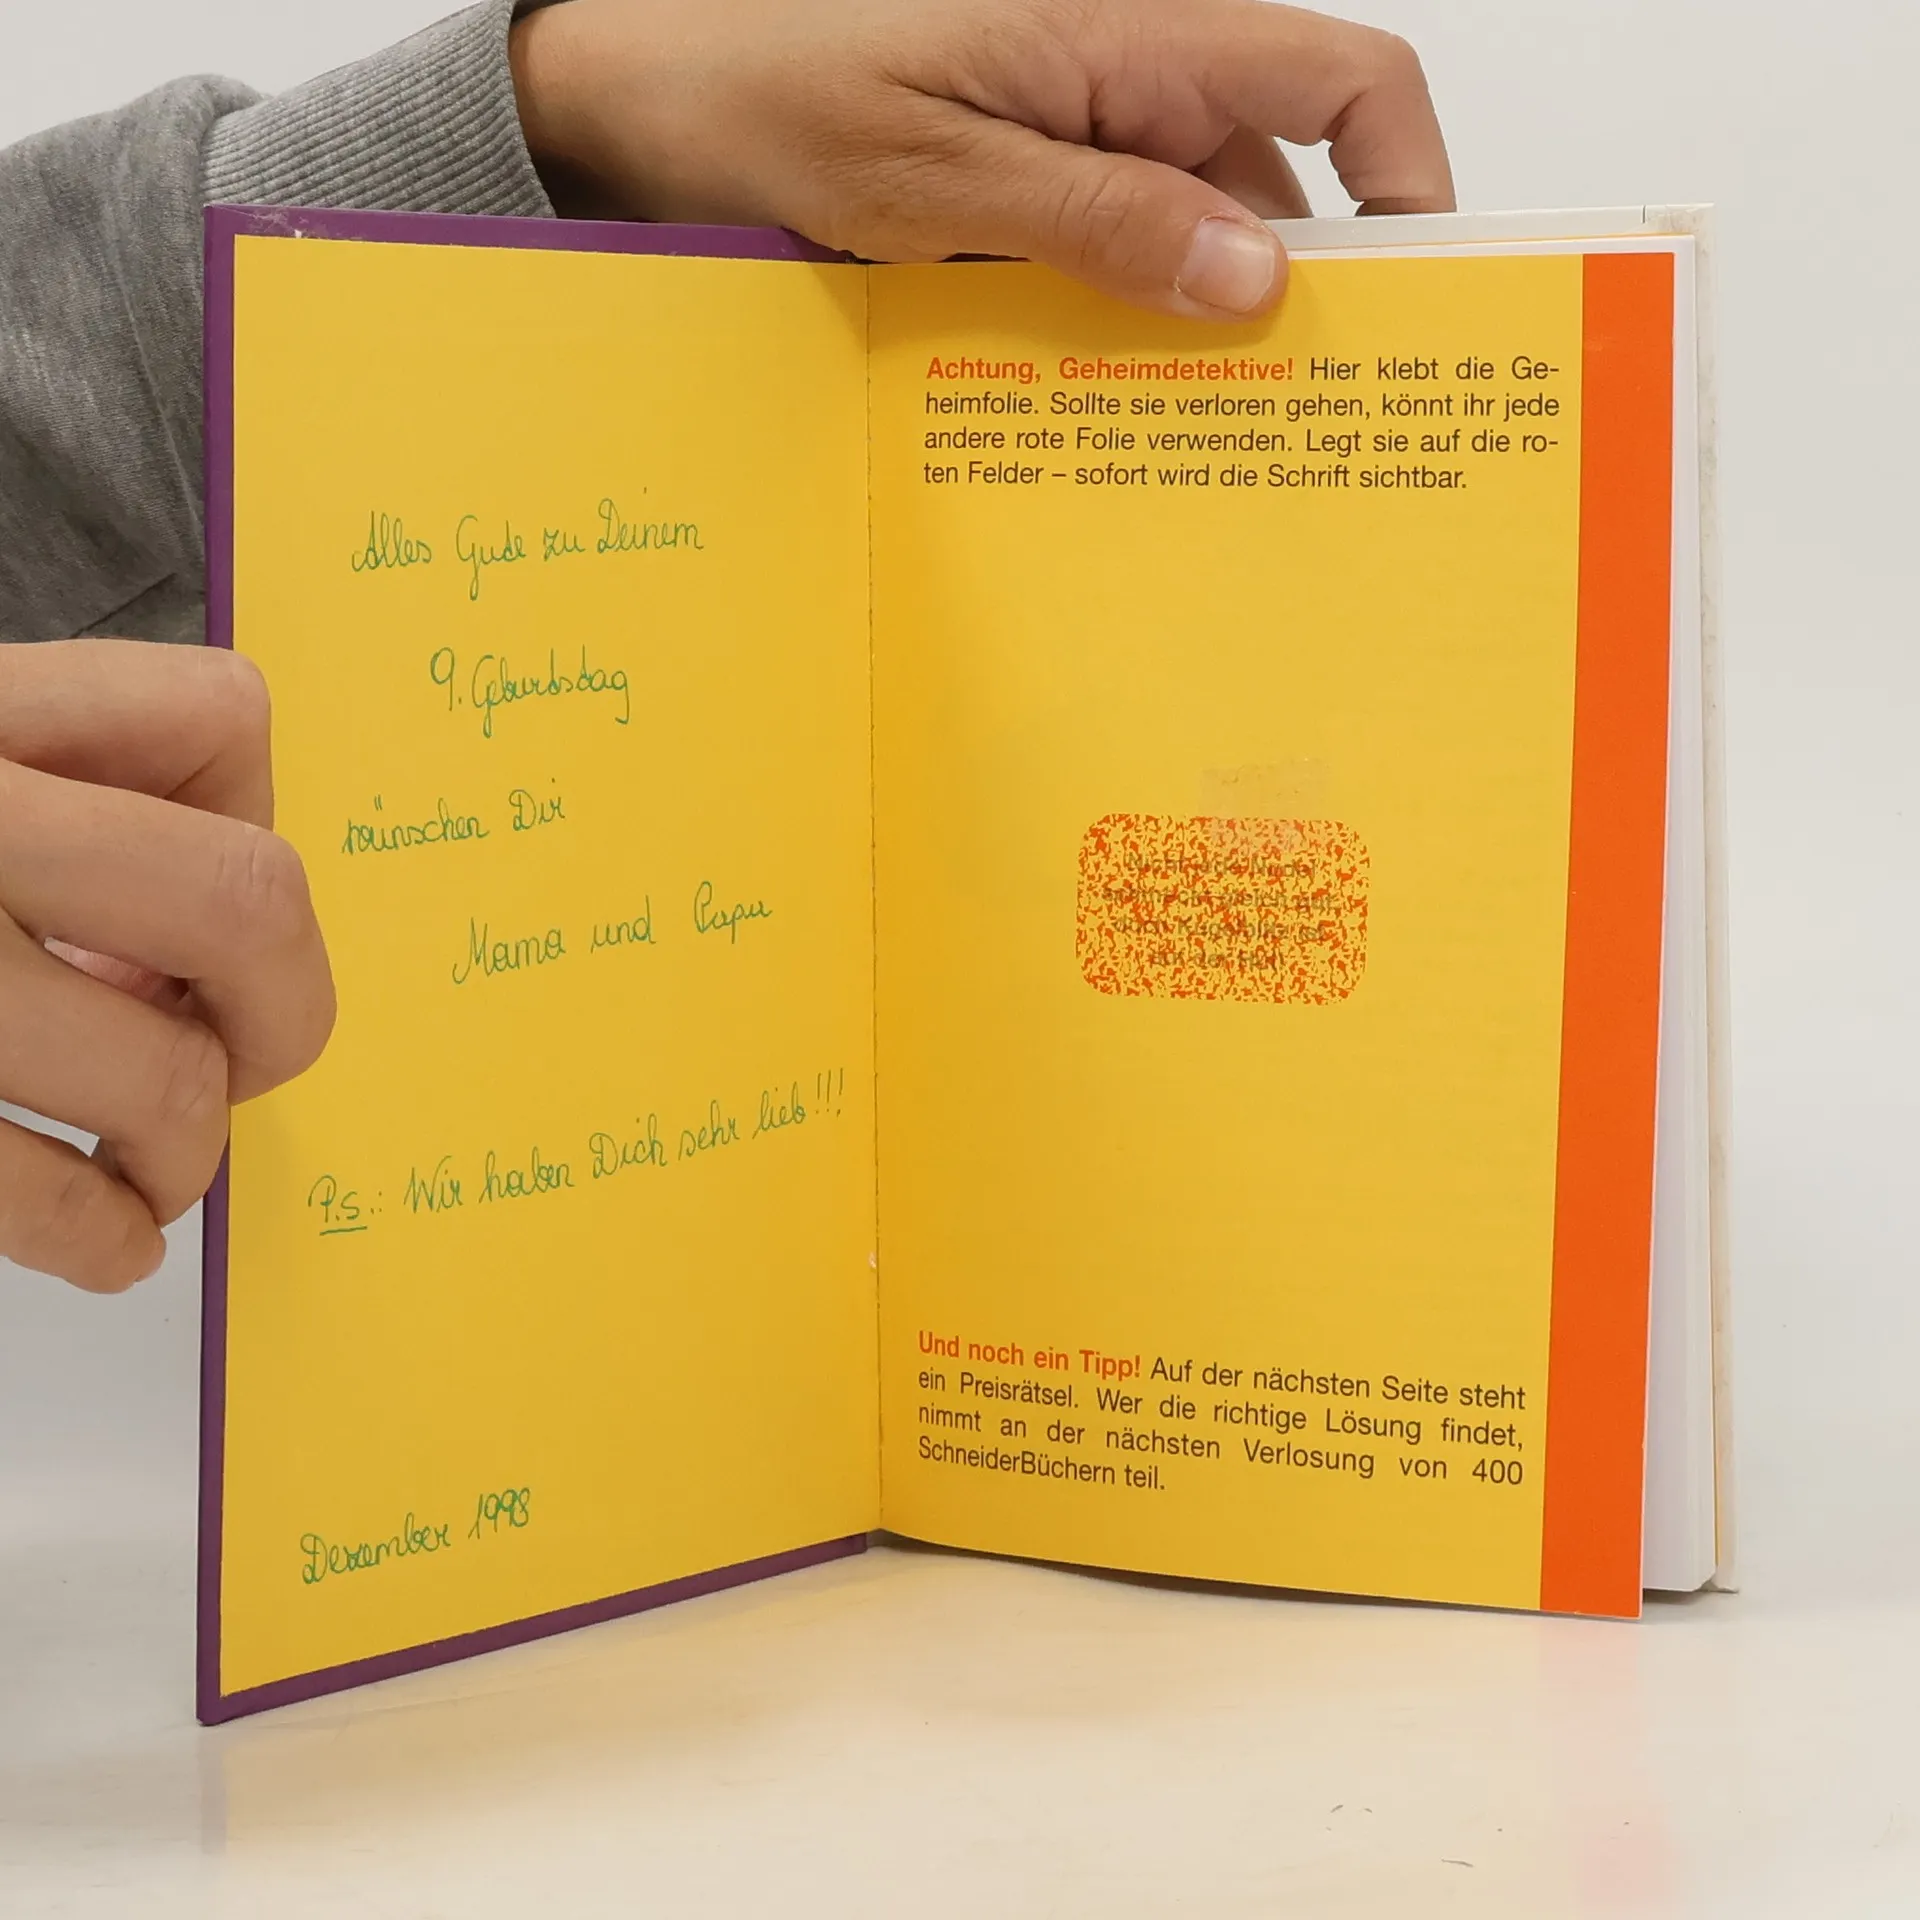 Alles Gute zu Deinem
9. Geburtstag
wünschen Dir
Mama und Papa
P.S.: Wir haben Dich sehr lieb!!!
Dezember 1998
Achtung, Geheimdetektive! Hier klebt die Ge-
heimfolie. Sollte sie verloren gehen, könnt ihr jede
andere rote Folie verwenden. Legt sie auf die ro-
ten Felder – sofort wird die Schrift sichtbar.
auf der Hut!
Und noch ein Tipp! Auf der nächsten Seite steht
ein Preisrätsel. Wer die richtige Lösung findet,
nimmt an der nächsten Verlosung von 400
SchneiderBüchern teil.